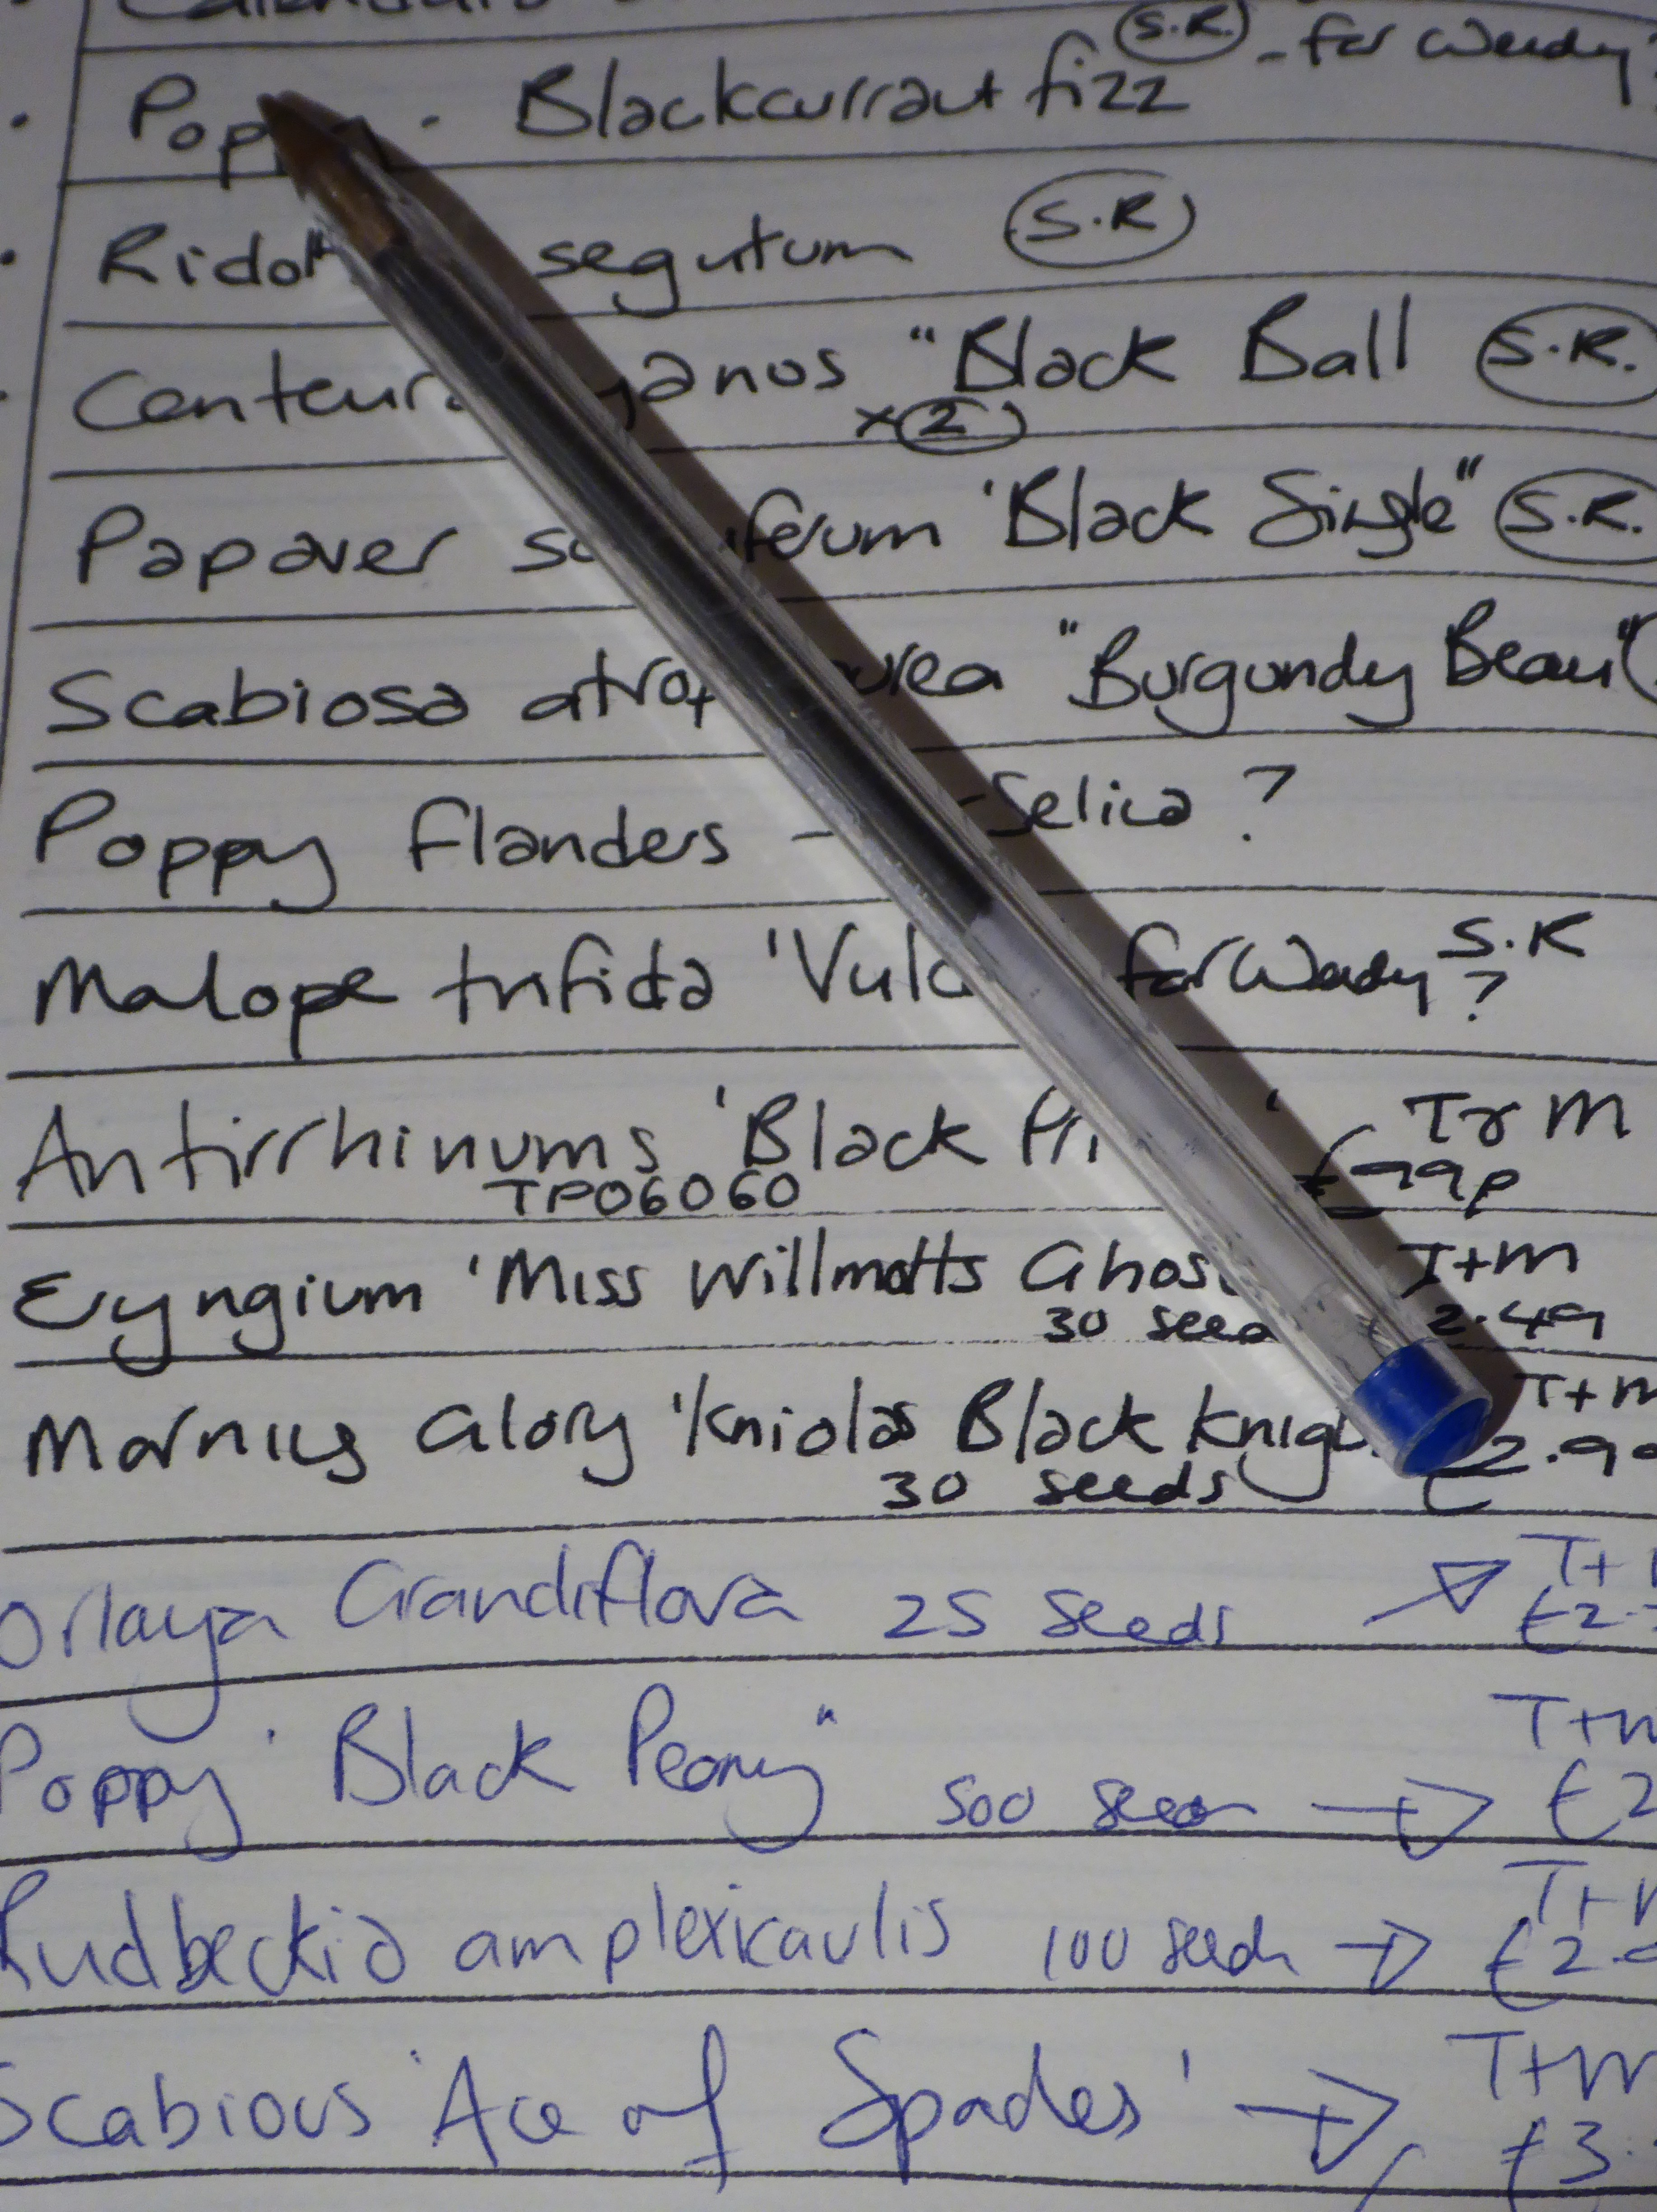 S.R. - for Wendy?
Pop - Blackcurrant fizz
Ridolf segutum S.R
Centeur yanos "Black Ball S.R.
x2
Papaver so iferum 'Black Single" S.R.
Scabiosa atrop urea "Burgundy Beau"
Poppy flanders - - Selica ?
Malope trifida 'Vulc for Wendy S.R
?
Antirrhinums 'Black Pri ' T&M
TP06060 £ 99p
Eryngium 'Miss Willmotts Ghos T+M
30 seed 2.49
Morning Glory 'Kniolas Black Knig T+M
30 seeds £2.9
Orlaya Grandiflora 25 seeds → T+
£2.
Poppy ' Black Peony" 500 seeds → T+M
£2
Rudbeckia amplexicaulis 100 seeds → T+M
£2.
Scabious 'Ace of Spades' → T+M
£3.